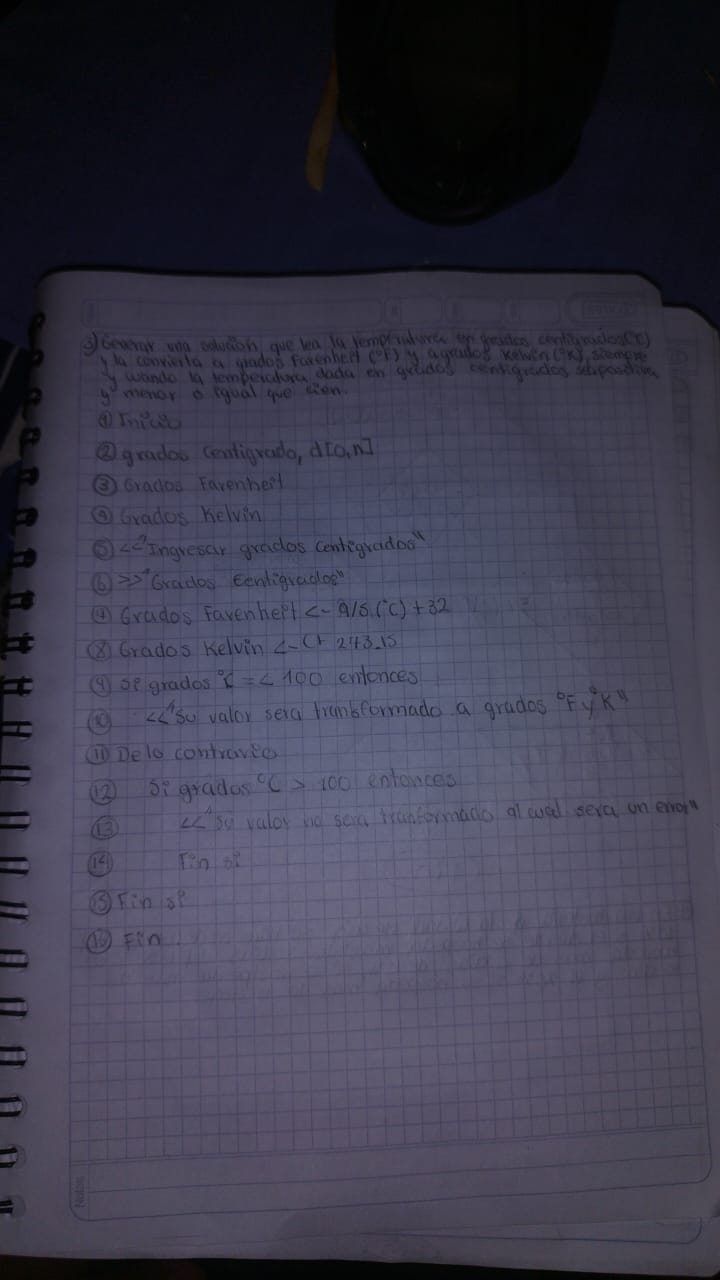 3) Generar una solución que lea la temperatura en grados centigrados(°C)
y la convierta a grados Farenheit (°F) y a grados Kelvin (°K), siempre
y cuando la temperatura dada en grados centigrados sea positiva
y menor o igual que cien.
① Inicio
② grados Centigrado, d[0,n]
③ Grados Farenheit
④ Grados Kelvin
⑤ <<"Ingresar grados Centigrados"
⑥ >>"Grados Centigrados"
⑦ Grados Farenheit <- 9/5.(°C) + 32
⑧ Grados Kelvin <- C+ 273.15
⑨ Si grados °C =< 100 entonces
⑩ <<"Su valor sera transformado a grados °F y °K"
⑪ De lo contrario
⑫ Si grados °C > 100 entonces
⑬ <<"Su valor no sera tranformado al cual sera un error"
⑭ Fin si
⑮ Fin si
⑯ Fin
Notas